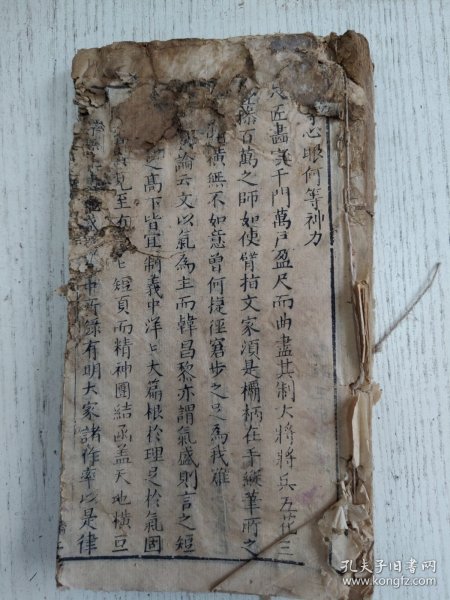 心眼何等神力
匠畫宮千門萬戶盈尺而曲盡其制大將將兵五花三
百萬之師如使臂指文家須是欛柄在手縱筆所之
橫無不如意曾何捷徑窘步之足為我難
論云文以氣為主而韓昌黎亦謂氣盛則言之短
之高下皆宜制義中洋口大篇根於理足於氣固
見至短頁而精神團結函蓋天地橫亘
中所錄有明大家諸作率以是律
孔夫子旧书网
www.kongfz.com